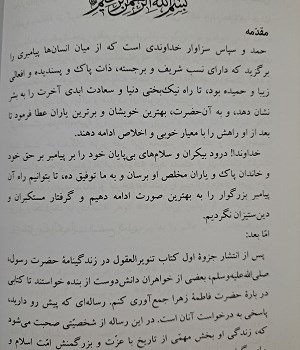 بسم الله الرحمن الرحیم
مقدمه
حمد و سپاس سزاوار خداوندی است که از میان انسان‌ها پیامبری را
برگزید که دارای نسب شریف و برجسته، ذات پاک و پسندیده و افعالی
زیبا و حمیده بود، تا راه نیک‌بختی دنیا و سعادت ابدی آخرت را به بشر
نشان دهد، و به آن‌حضرت، بهترین خویشان و برترین یاران عطا فرمود تا
بعد از او راهش را با معیار خوبی و اخلاص ادامه دهند.
خداوندا! درود بیکران و سلام‌های بی‌پایان خود را بر پیامبر بر حق خود و
خاندان پاک و یاران مخلص او برسان و به ما توفیق ده، تا بتوانیم راه آن
پیامبر بزرگوار را به بهترین صورت ادامه دهیم و گرفتار مستکبران و
دین‌ستیزان نگردیم.
امّا بعد:
پس از انتشار جزوۀ اول کتاب تنویرالعقول در زندگینامۀ حضرت رسول،
صلی‌الله‌علیه‌وسلم، بعضی از خواهران دانش‌دوست از بنده خواستند تا کتابی
در بارۀ حضرت فاطمۀ زهرا جمع‌آوری کنم. رساله‌ای که پیش رو دارید،
پاسخی به درخواست آنان است. در این رساله از شخصیّتی صحبت می‌شود
که، زندگی او بخش مهمّی از تاریخ با عزّت و بزرگمنش امّت اسلام و